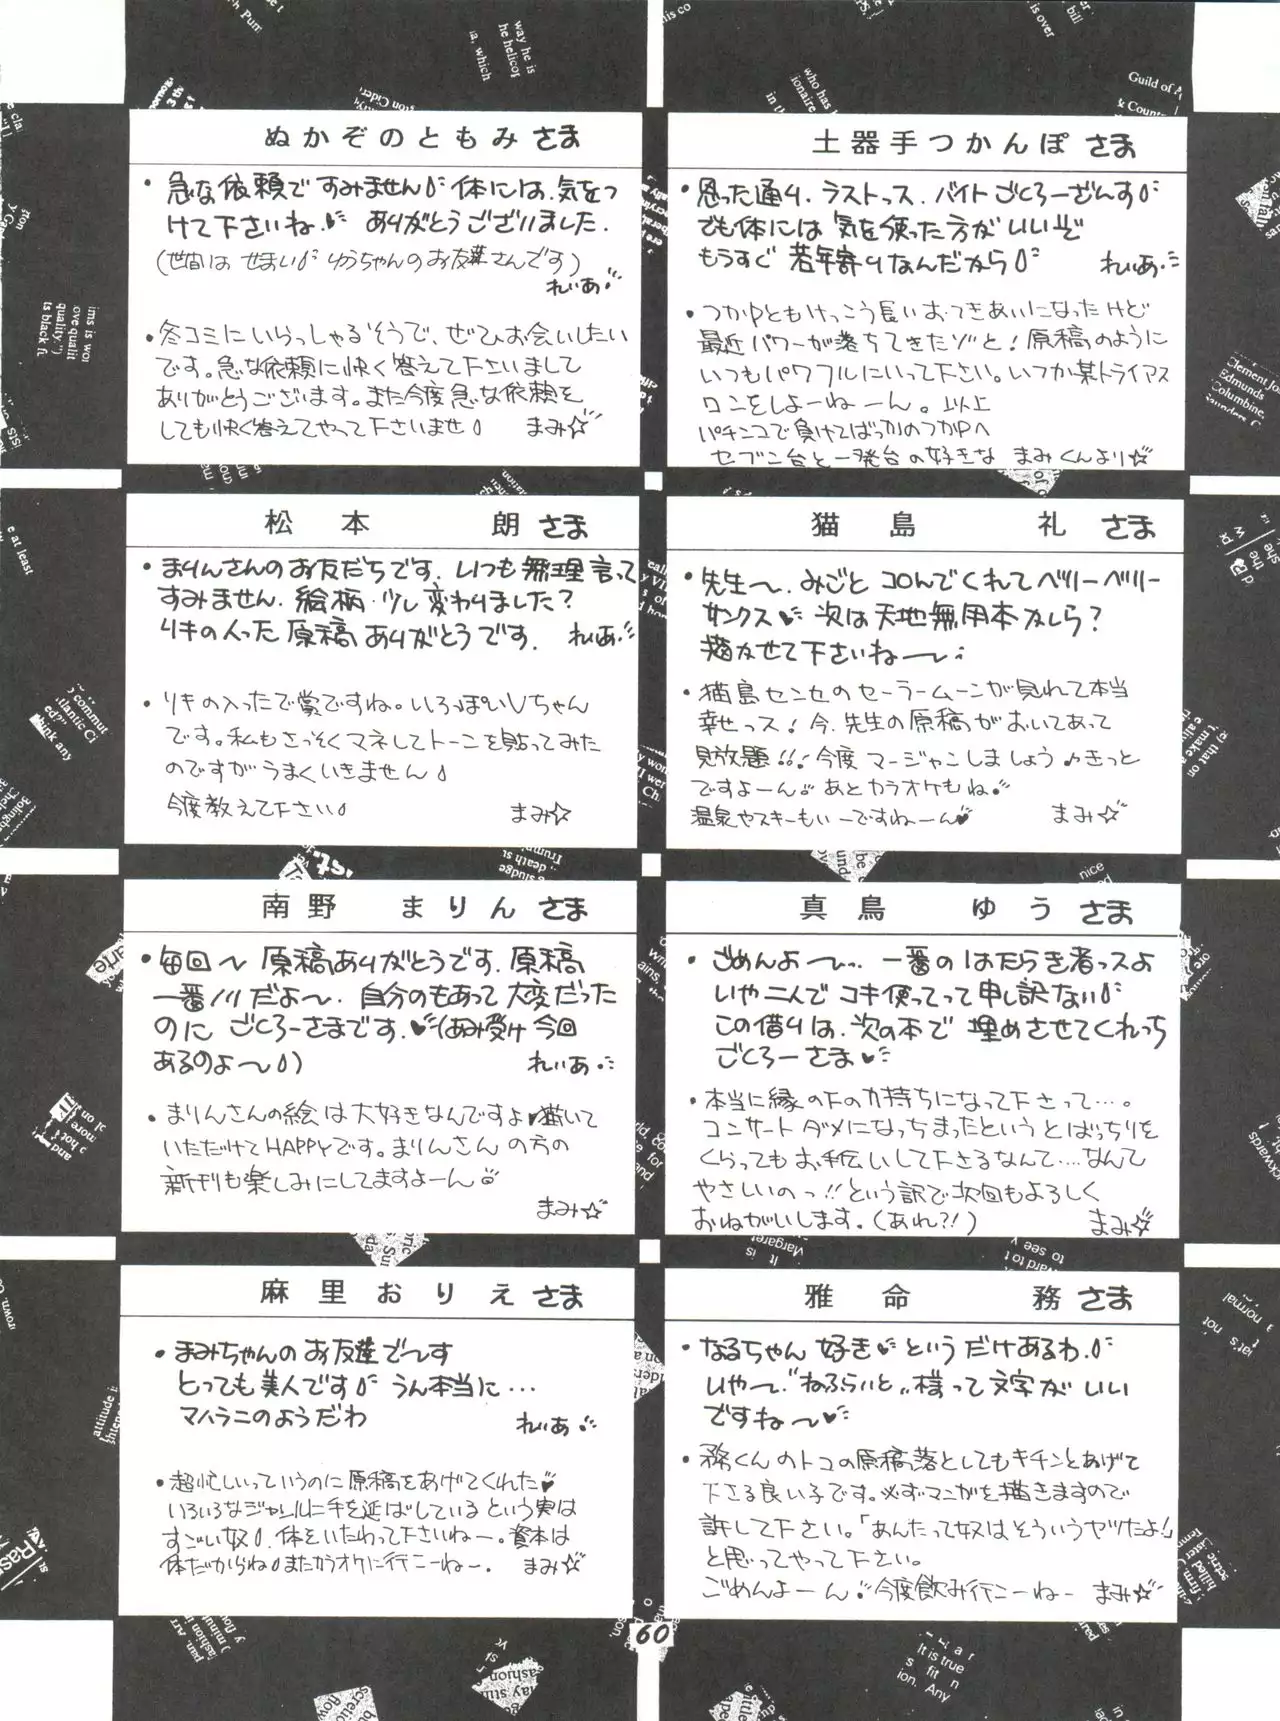 ぬかぞのともみさま
・急な依頼ですみません♪体には、気をつ
けて下さいね. ありがとうございました.
(世間はせまい♪ゆうちゃんのお友達さんです)
れいあ
・冬コミにいらっしゃるそうで、ぜひお会いしたい
です。急な依頼に快く答えて下さいまして
ありがとうございます。また今度急な依頼を
しても快く答えてやって下さいませ♪ まみ☆
土器手つかんぽさま
・思った通り、ラストっス、バイトごくろーざんす♪
でも体には気を使った方がいいぞ
もうすぐ若年寄りなんだから♪ れいあ
・つかPともけっこう長いおつきあいになったけど
最近パワーが落ちてきたゾと!原稿のように
いつもパワフルにいって下さい。いつか某トライアス
ロンをしよーねーん。以上
パチンコで負けてばっかのつかPへ
セブン台と一発台の好きな まみくんより☆
松本 朗さま
・まりんさんのお友だちです. いつも無理言って
すみません. 絵柄・少し変わりました?
リキの入った原稿ありがとうです. れいあ
・リキの入ったで賞ですね。いろっぽいVちゃん
です。私もさっそくマネしてトーンを貼ってみた
のですがうまくいきません♪
今度教えて下さい♪ まみ☆
猫島 礼 さま
・先生〜. みごとコロんでくれてベリーベリー
サンクス♥ 次は天地無用本かしら?
描かせて下さいね〜
・猫島センセのセーラームーンが見れて本当
幸せっス!今、先生の原稿がおいてあって
見放題!!今度マージャンしましょう♪きっと
ですよーん あとカラオケもね
温泉やスキーもいーですねーん♥ まみ☆
南野 まりんさま
・毎回〜原稿ありがとうです. 原稿
一番ノリだよ〜. 自分のもあって大変だった
のにごくろーさまです.♥(あみ受け今回
あるのよ〜♪) れいあ
・まりんさんの絵は大好きなんですよ♥描いて
いただけてHAPPYです。まりんさんの方の
新刊も楽しみにしてますよーん
まみ☆
真鳥 ゆうさま
・ごめんよ〜.. 一番のはたらき者っスよ
いや二人でコキ使ってって申し訳ない♪
この借りは、次の本で埋めさせてくれっち
ごくろーさま♥
・本当に縁の下の力持ちになって下さって…。
コンサートダメになっちまったというとばっちりを
くらってもお手伝いして下さるなんて…なんて
やさしいのっ!!という訳で次回もよろしく
おねがいします。(あれ?!) まみ☆
麻里おりえさま
・まみちゃんのお友達で〜す
とっても美人です♪ うん本当に…
マハラニのようだわ れいあ
・超忙しいっていうのに原稿をあげてくれた♥
いろいろなジャンルに手を延ばしているという実は
すごい奴♪. 体をいたわって下さいねー。資本は
体だからね♪またカラオケに行こーねー. まみ☆
雅命 務さま
・なるちゃん好き♥というだけあるわ.♪
いや〜“ねふらいと”様って文字がいい
ですね〜♥
・務くんのトコの原稿落としてもキチンとあげて
下さる良い子です。必ずマンガを描きますので
許して下さい。「あんたって奴はそういうヤツだよ!」
と思ってやって下さい。
ごめんよーん 今度飲み行こーねー まみ☆
60